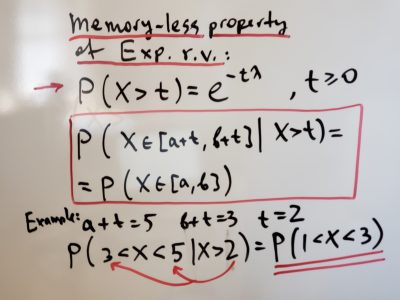 Memory-less property
of Exp. r.v.:
→ P(X>t) = e^{-tλ} , t≥0
P( X∈[a+t, b+t] | X>t) =
= P(X∈[a,b])
Example: a+t=5 b+t=3 t=2
P(3<X<5|X>2) = P(1<X<3)